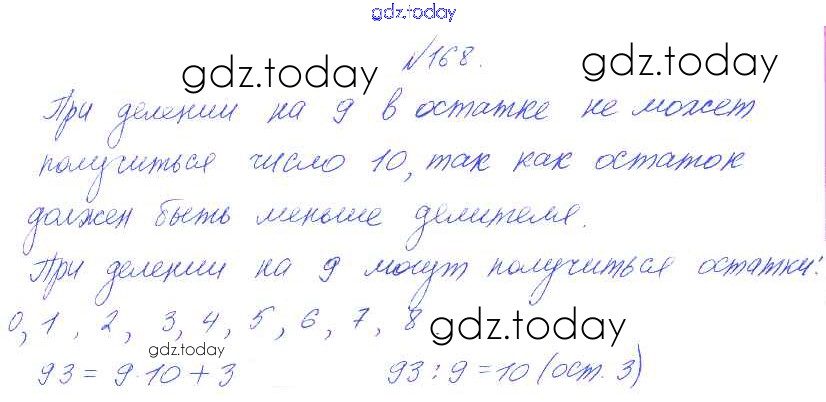 gdz.today
№168.
gdz.today gdz.today
При делении на 9 в остатке не может
получиться число 10, так как остаток
должен быть меньше делителя.
При делении на 9 могут получиться остатки:
0, 1, 2, 3, 4, 5, 6, 7, 8.
gdz.today
gdz.today
93 = 9·10 + 3 93 : 9 = 10 (ост. 3)